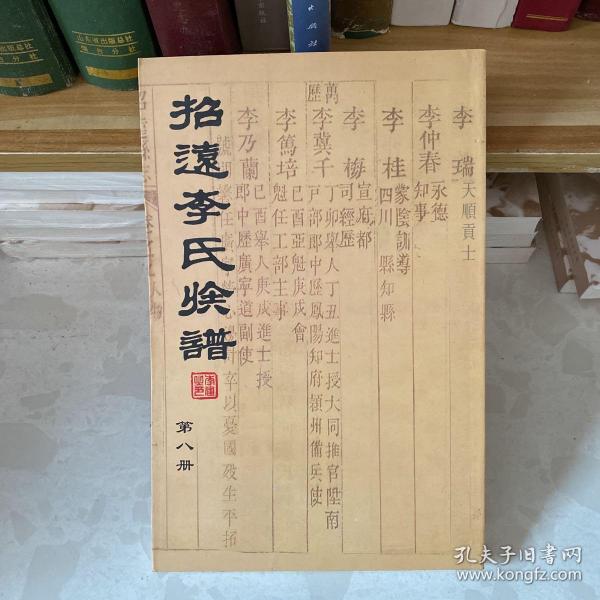 招遠李氏族譜
第八册
李瑞 天順貢士
李仲春 永德知事
李桂 蒙陰訓導
四川 縣知縣
李梅 宣府都司經歷
萬歷
李冀千 丁卯舉人丁丑進士授大同推官陞南
戶部郎中歷鳳陽知府潁州備兵使
李篤培 己酉亞魁庚戌會
魁任工部主事
李乃蘭 己酉舉人庚戌進士授
郎中歷廣寧道副使
卒以憂國殁生平拓
山东省出版总社
烟台分社
孔夫子旧书网
www.kongfz.com